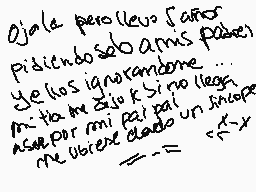 Ojala pero llevo 5 años
pidiendoselo a mis padres
y ellos ignorandome...
mi tia me dijo k si no llega
a ser por mi pai pai
me ubiese dado un sincope